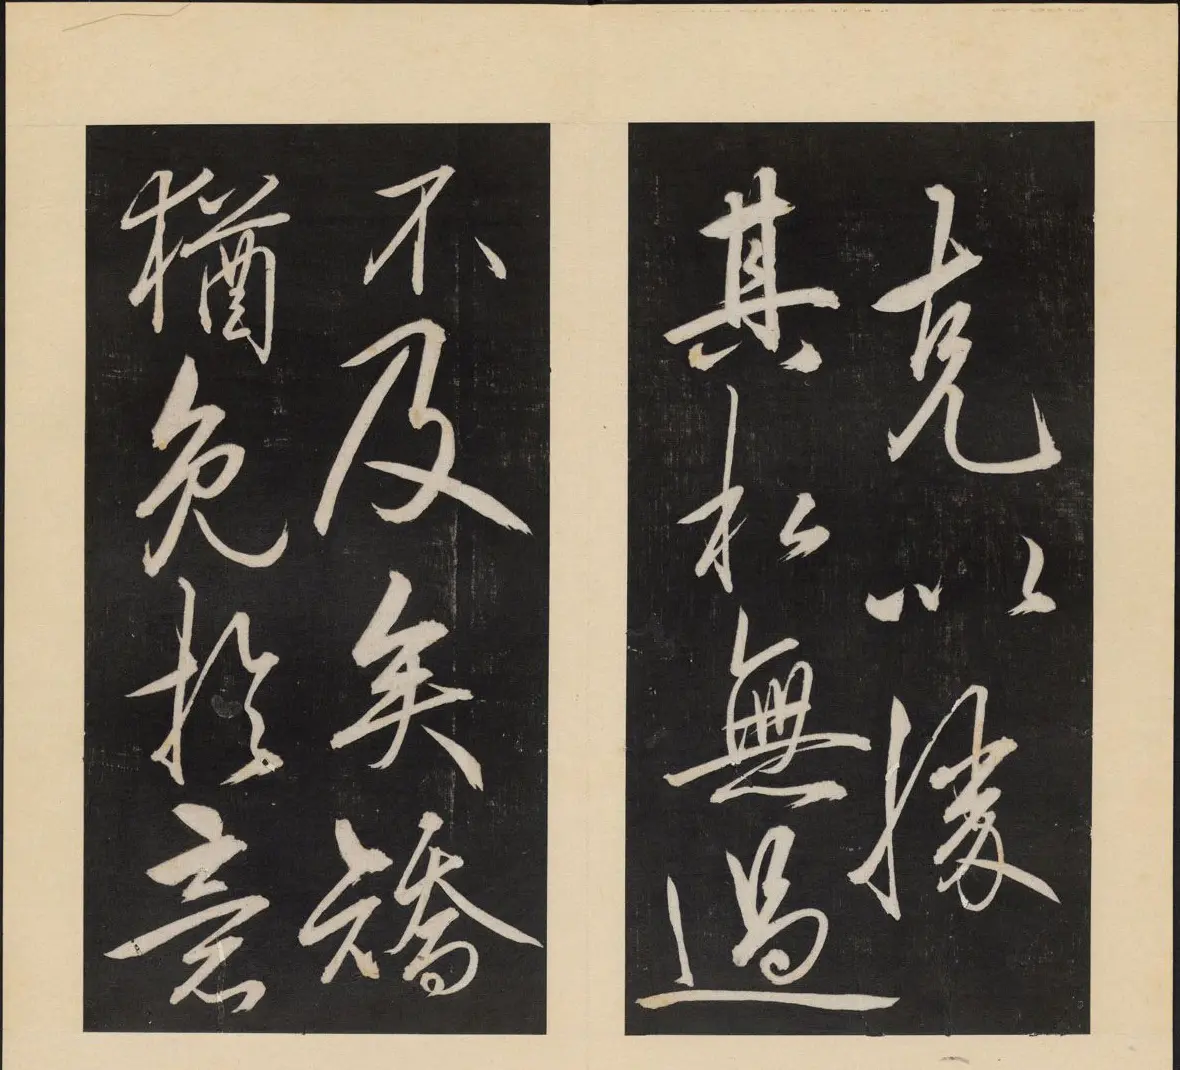 克以勝
其私無過
不及矣矯
猶免於意